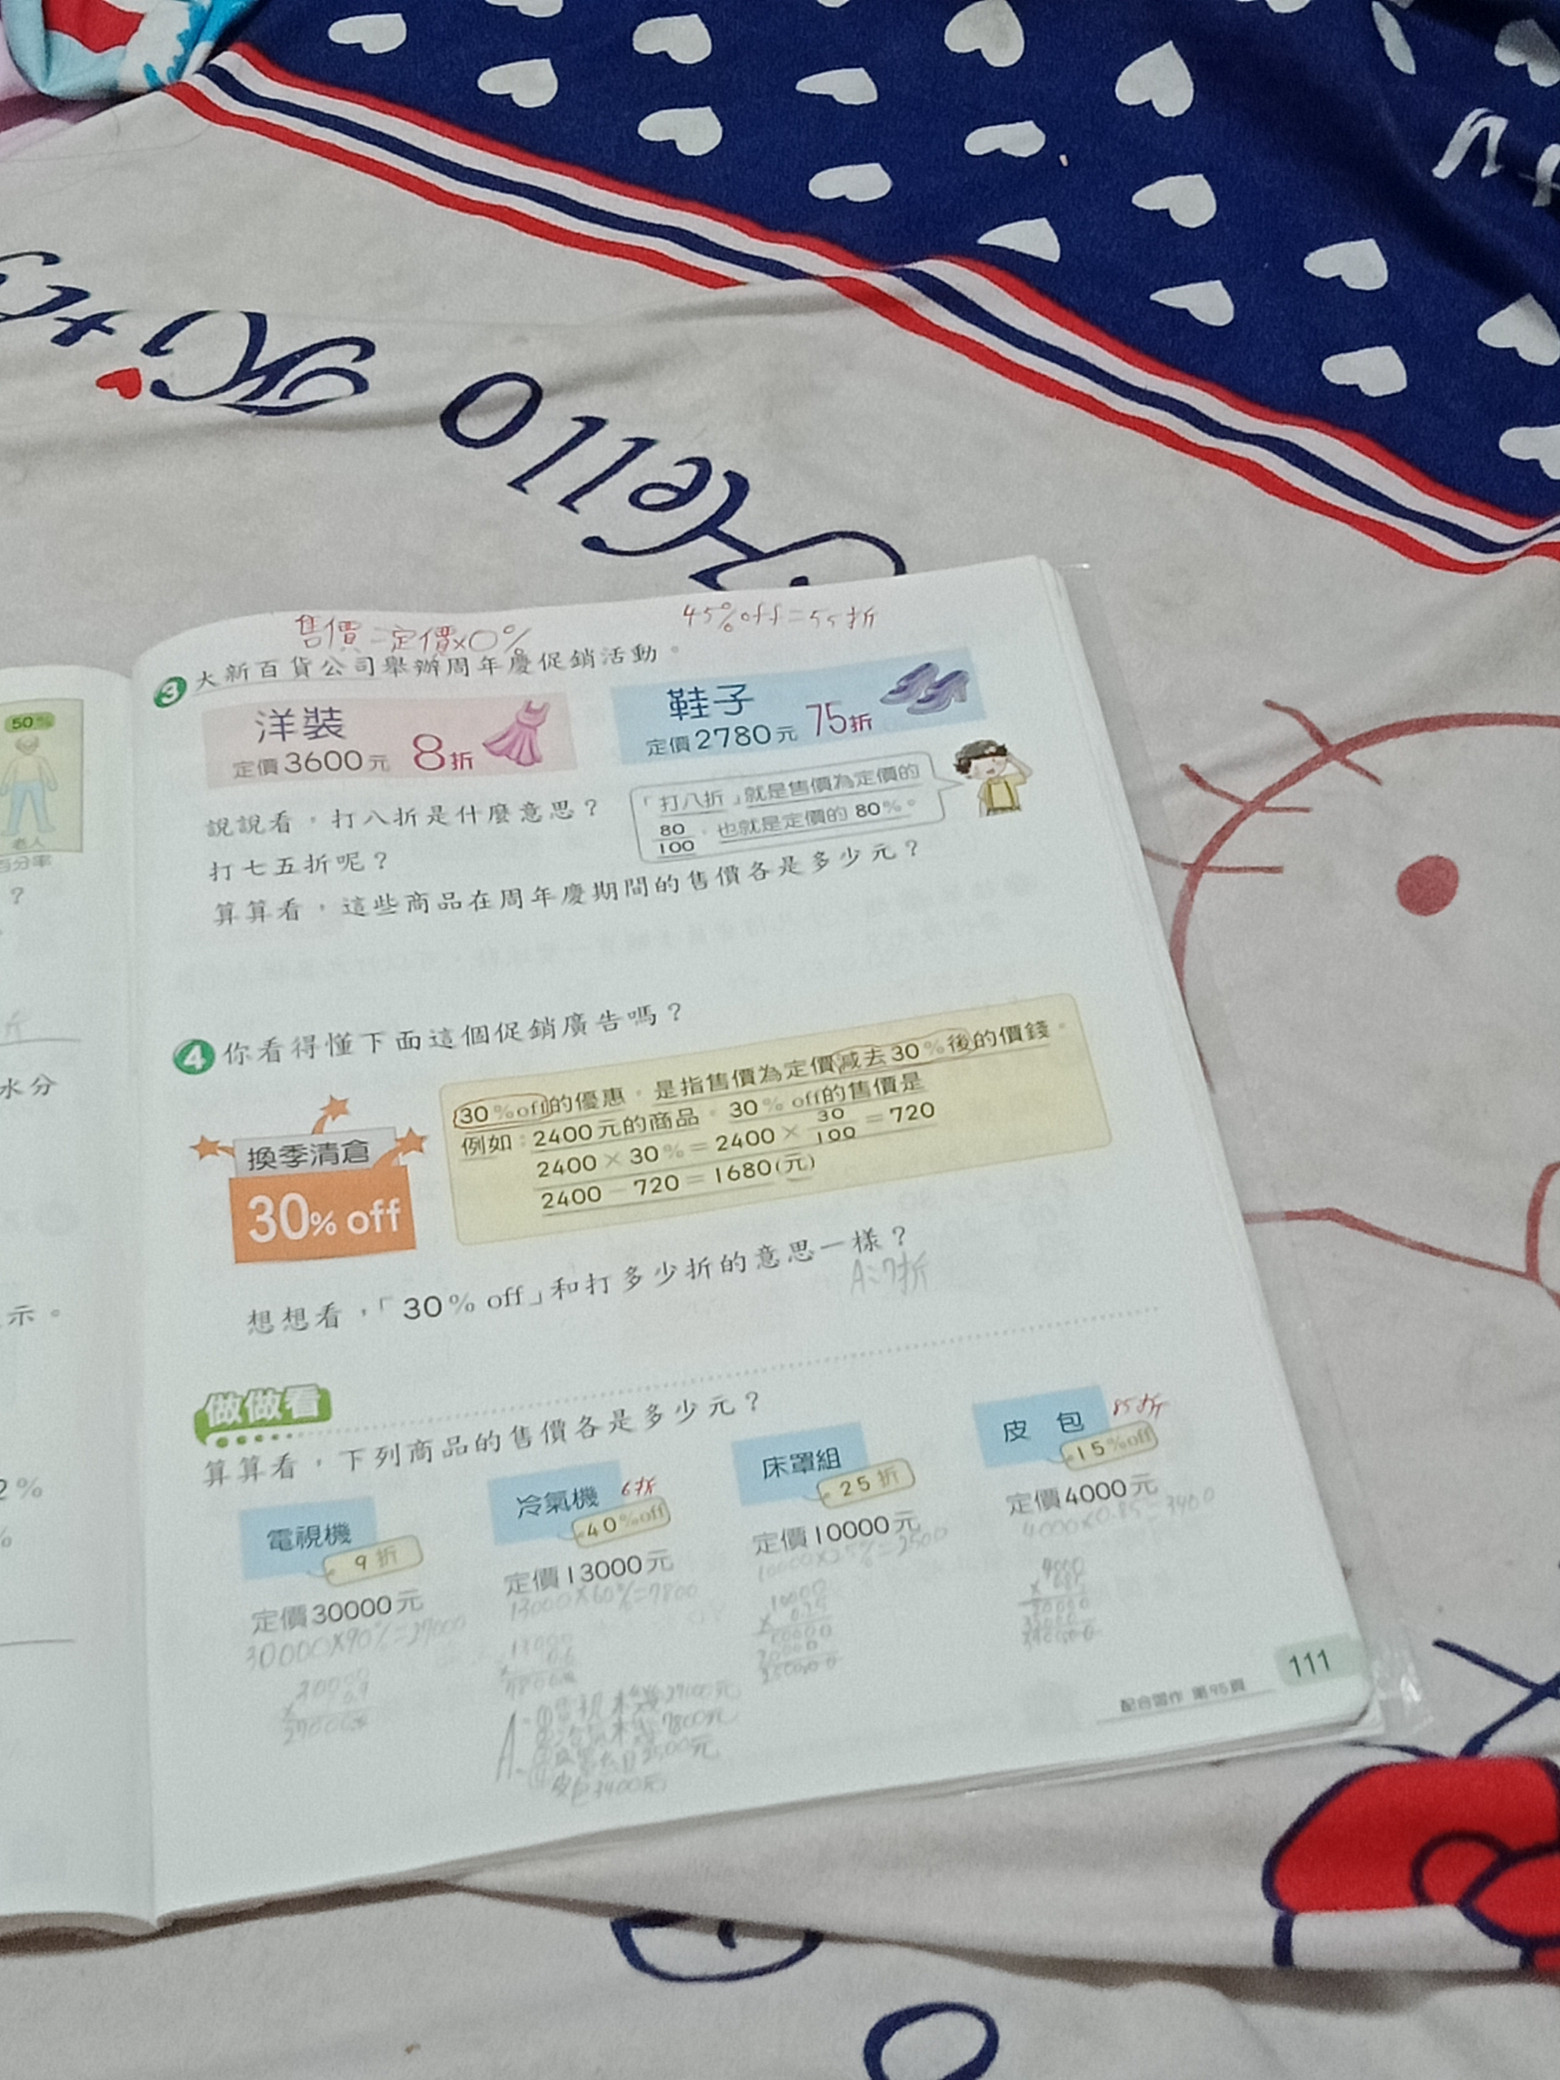 Hello
50%
老人
百分率
?
水分
示。
2%
售價=定價×0%
45%off=55折
3 大新百貨公司舉辦周年慶促銷活動。
洋裝
定價3600元 8折
鞋子
定價2780元 75折
說說看,打八折是什麼意思?
打七五折呢?
「打八折」就是售價為定價的
80/100,也就是定價的80%。
算算看,這些商品在周年慶期間的售價各是多少元?
4 你看得懂下面這個促銷廣告嗎?
換季清倉
30% off
30%off的優惠,是指售價為定價減去30%後的價錢。
例如:2400元的商品,30% off的售價是
2400×30%=2400×30/100=720
2400-720=1680(元)
想想看,「30% off」和打多少折的意思一樣?
A:7折
做做看
算算看,下列商品的售價各是多少元?
電視機
9折
定價30000元
30000×90%=27000
冷氣機 6折
40%off
定價13000元
13000×60%=7800
床罩組
25折
定價10000元
10000×25%=2500
皮包 85折
15%off
定價4000元
4000×0.85=3400
配合習作 第95頁
111